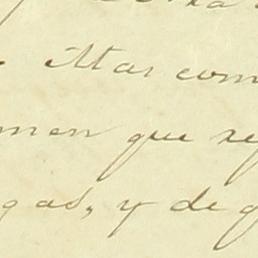 Mas com
men que re
gas, y de g